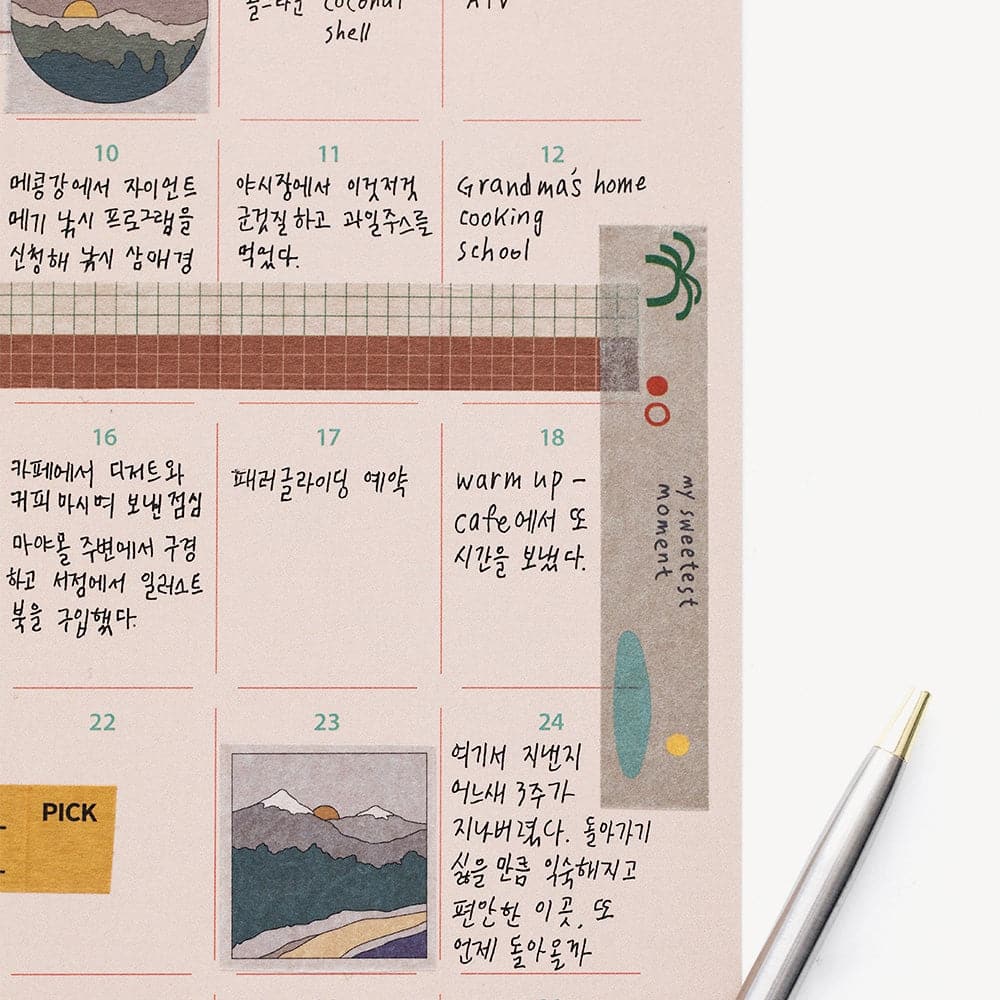 coconut
shell
ATV
10
메콩강에서 자이언트
메기 낚시 프로그램을
신청해 낚시 삼매경
11
야시장에서 이것저것
군것질하고 과일주스를
먹었다.
12
Grandma's home
cooking
school
16
카페에서 디저트와
커피 마시며 보낸 점심
마야몰 주변에서 구경
하고 서점에서 일러스트
북을 구입했다.
17
패러글라이딩 예약
18
warm up -
cafe에서 또
시간을 보냈다.
my sweetest
moment
22
PICK
23
24
여기서 지낸지
어느새 3주가
지나버렸다. 돌아가기
싫을 만큼 익숙해지고
편안한 이곳, 또
언제 돌아올까